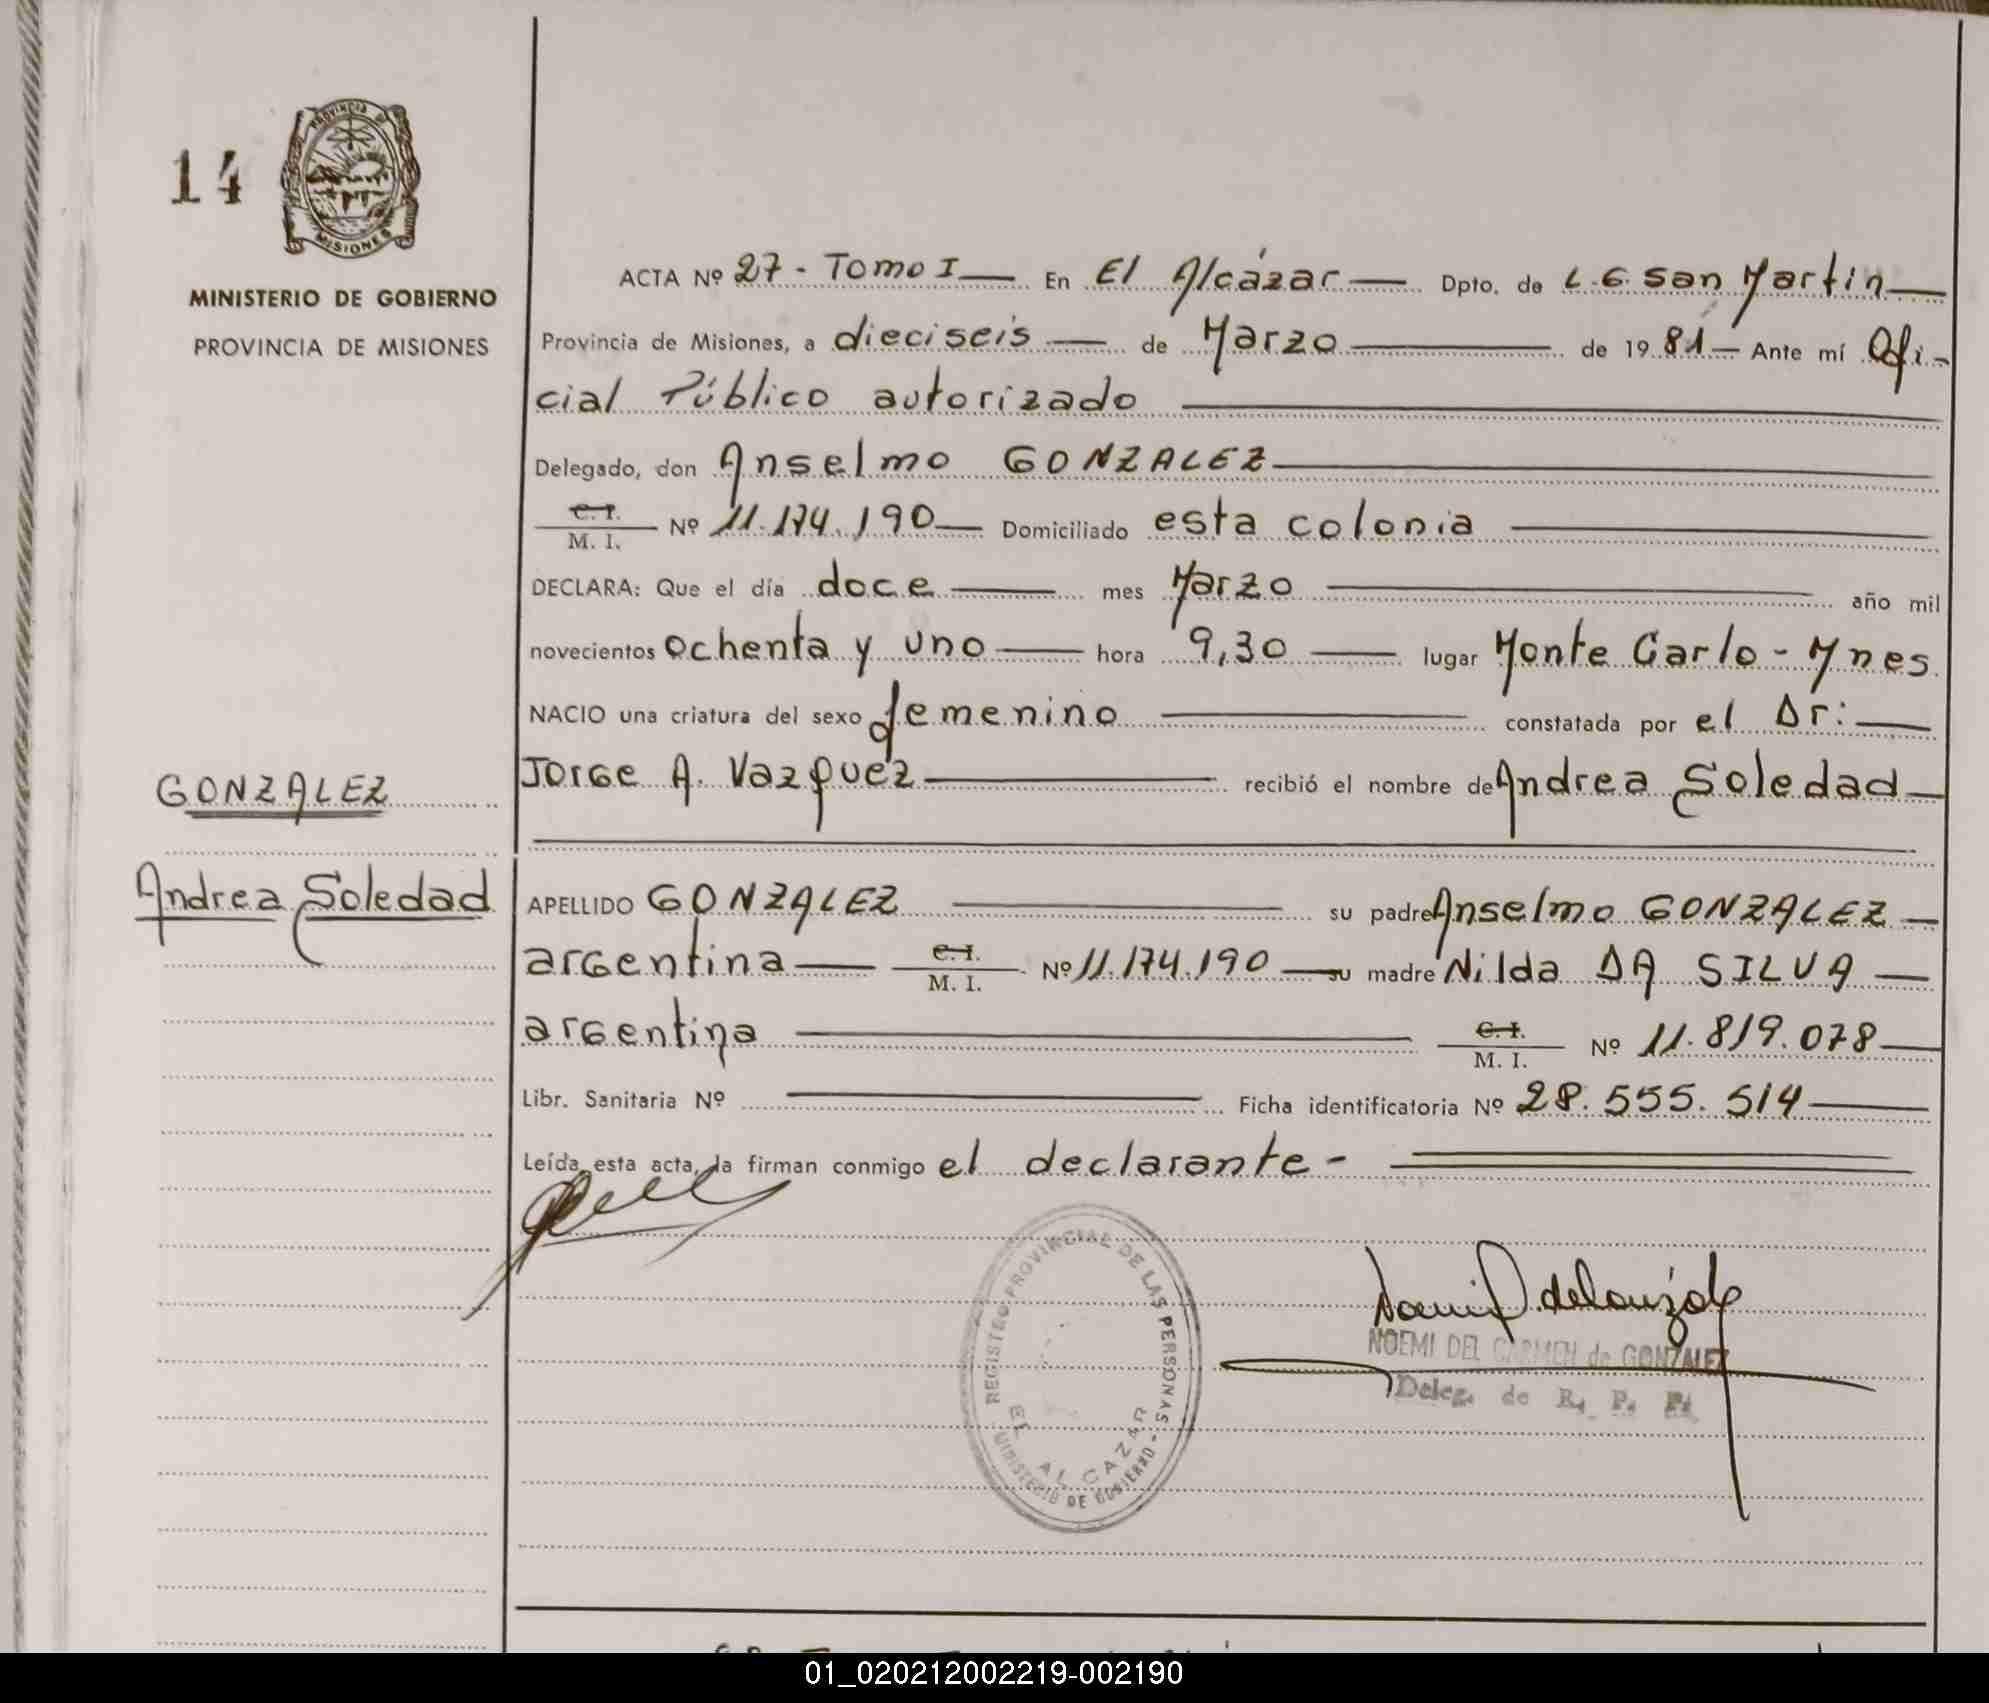 14
PROVINCIA DE
MISIONES
MINISTERIO DE GOBIERNO
PROVINCIA DE MISIONES
ACTA Nº 27 - Tomo I — En El Alcázar — Dpto. de L.G. San Martín —
Provincia de Misiones, a dieciseis — de Marzo — de 19 81 — Ante mí Ofi-
cial Público autorizado
Delegado, don Anselmo GONZALEZ
C. I. / M. I. Nº 11.174.190 — Domiciliado esta colonia
DECLARA: Que el día doce — mes Marzo — año mil
novecientos ochenta y uno — hora 9,30 — lugar Monte Carlo - Mnes.
NACIO una criatura del sexo femenino — constatada por el Dr: —
Jorge A. Vazquez — recibió el nombre de Andrea Soledad —
GONZALEZ
Andrea Soledad
APELLIDO GONZALEZ — su padre Anselmo GONZALEZ —
argentina — C. I. / M. I. Nº 11.174.190 — su madre Nilda DA SILVA —
argentina — C. I. / M. I. Nº 11.819.078 —
Libr. Sanitaria Nº — Ficha identificatoria Nº 28.555.514 —
Leída esta acta, la firman conmigo el declarante -
REGISTRO PROVINCIAL DE LAS PERSONAS
EL ALCAZAR
MINISTERIO DE GOBIERNO
NOEMI DEL CARMEN de GONZALEZ
Deleg. de R. P. P.
01_020212002219-002190